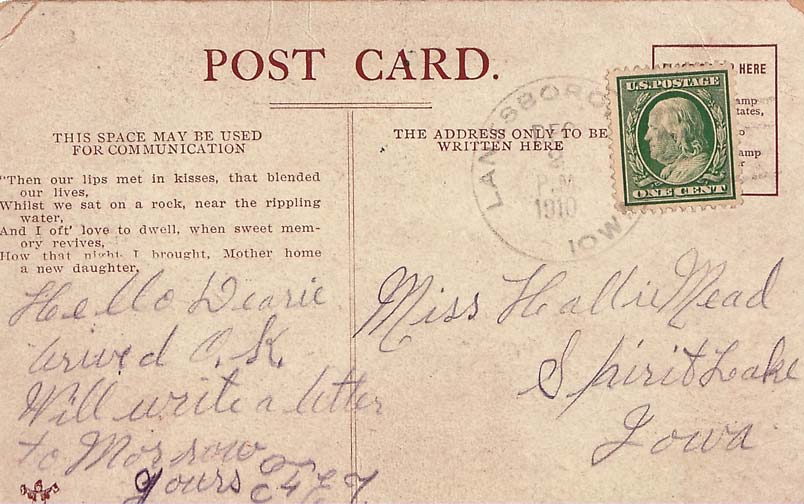 POST CARD.
THIS SPACE MAY BE USED
FOR COMMUNICATION
"Then our lips met in kisses, that blended
our lives,
Whilst we sat on a rock, near the rippling
water,
And I oft' love to dwell, when sweet mem-
ory revives,
How that night I brought, Mother home
a new daughter,
Hello Dearie
arived O.K.
Will write a letter
to Morrow
Yours
THE ADDRESS ONLY TO BE
WRITTEN HERE
DEC
P.M.
1910
IOWA
U.S. POSTAGE
ONE CENT
HERE
Miss Hallie Mead
Spirit Lake
Iowa